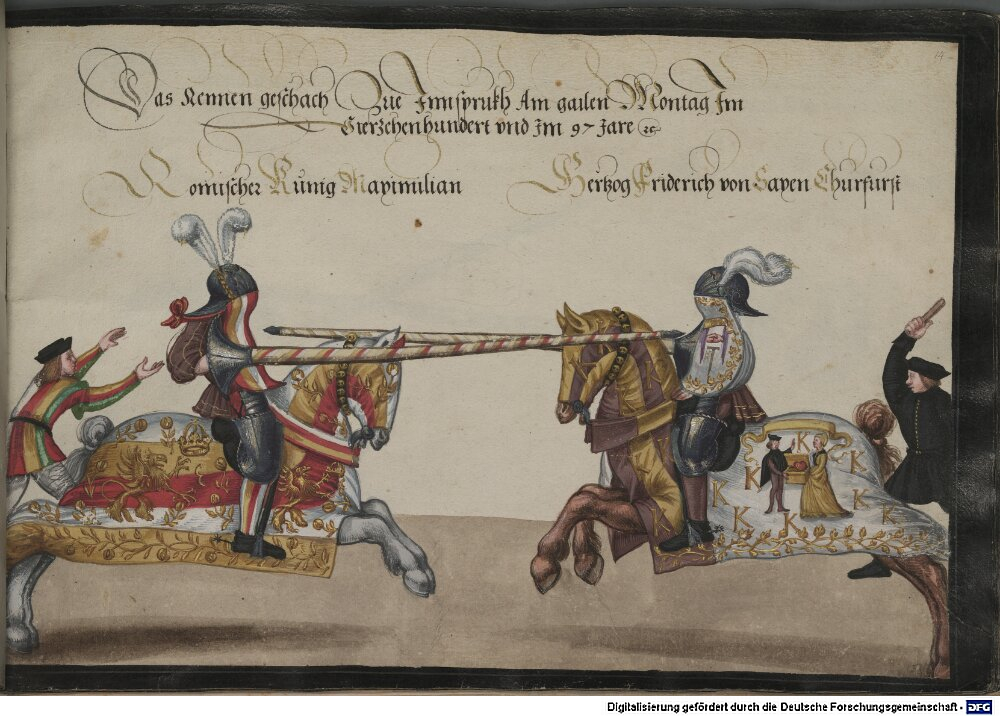 14
Das Rennen geschach Zue Innsprukh Am gailen Montag Im
Vierzehenhundert vnd Im 97 Jare
Romischer Kunig Maximilian
Hertzog Friderich von Saxen Churfurst
K
K K
K K
K K K
Digitalisierung gefördert durch die Deutsche Forschungsgemeinschaft - DFG